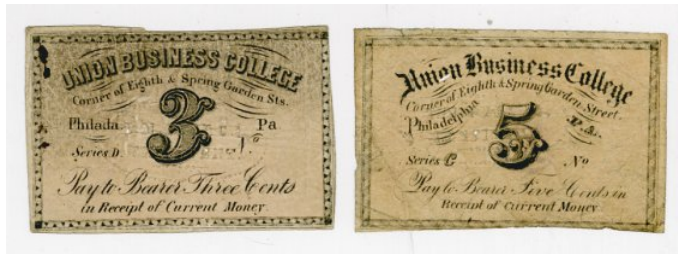 UNION BUSINESS COLLEGE
Corner of Eighth & Spring Garden Sts.
Philada 3 Pa
Series D. No
Pay to Bearer Three Cents
in Receipt of Current Money
Union Business College
Corner of Eighth & Spring Garden Street.
Philadelphia 5 Pa.
Series C No
Pay to Bearer Five Cents in
Receipt of Current Money